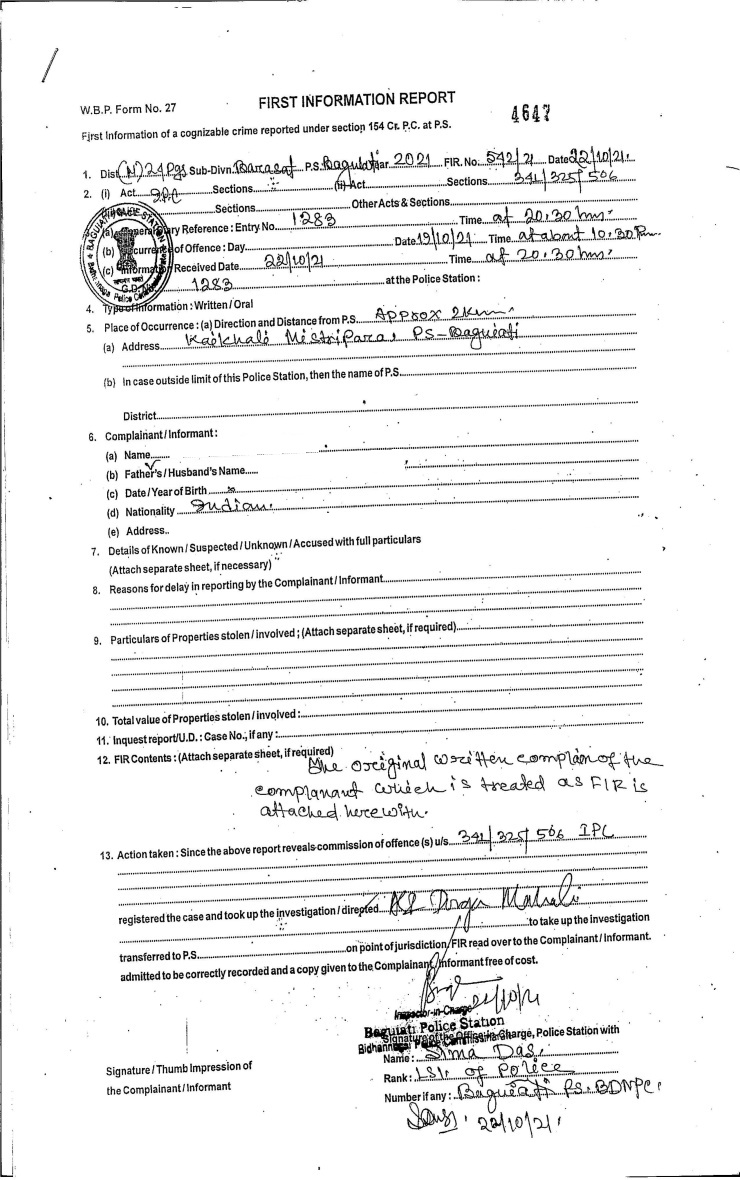 W.B.P. Form No. 27
FIRST INFORMATION REPORT
4647
First Information of a cognizable crime reported under section 154 Cr. P.C. at P.S.
1. Dist (N) 24 Pgs Sub-Divn. Barasat P.S. Baguiati Year 2021 FIR. No. 542/21 Date 22/10/21.
2. (i) Act IPC Sections (ii) Act Sections 341/325/506
Sections Other Acts & Sections
(a) General Diary Reference : Entry No. 1283 Time at 20:30 hrs.
(b) Occurrence of Offence : Day Date 19/10/21 Time at about 10:30 Pm.
(c) Information Received Date 22/10/21 Time at 20:30 hrs.
G.D. No. 1283 at the Police Station :
BAGUIATI POLICE STATION
4. Type of Information : Written / Oral
5. Place of Occurrence : (a) Direction and Distance from P.S. Approx 2km.
(a) Address Kaikhali Mistripara, PS-Baguiati
(b) In case outside limit of this Police Station, then the name of P.S.
District
6. Complainant / Informant :
(a) Name
(b) Father's / Husband's Name
(c) Date / Year of Birth
(d) Nationality Indian.
(e) Address..
7. Details of Known / Suspected / Unknown / Accused with full particulars
(Attach separate sheet, if necessary)
8. Reasons for delay in reporting by the Complainant / Informant
9. Particulars of Properties stolen / involved ; (Attach separate sheet, if required)
10. Total value of Properties stolen / involved :
11. Inquest report/U.D. : Case No., if any :
12. FIR Contents : (Attach separate sheet, if required)
The original written complain of the
complanant which is treated as FIR is
attached herewith.
13. Action taken : Since the above report reveals commission of offence (s) u/s. 341/325/506 IPC
registered the case and took up the investigation / directed
to take up the investigation
transferred to P.S. on point of jurisdiction FIR read over to the Complainant / Informant.
admitted to be correctly recorded and a copy given to the Complainant / Informant free of cost.
22/10/21
Inspector-in-Charge
Baguiati Police Station
Signature of the Officer-in-Charge, Police Station with
Name : Sima Das.
Signature / Thumb Impression of
the Complainant / Informant
Rank : LSI of Police
Number if any : Baguiati PS. BDNPC.
22/10/21.